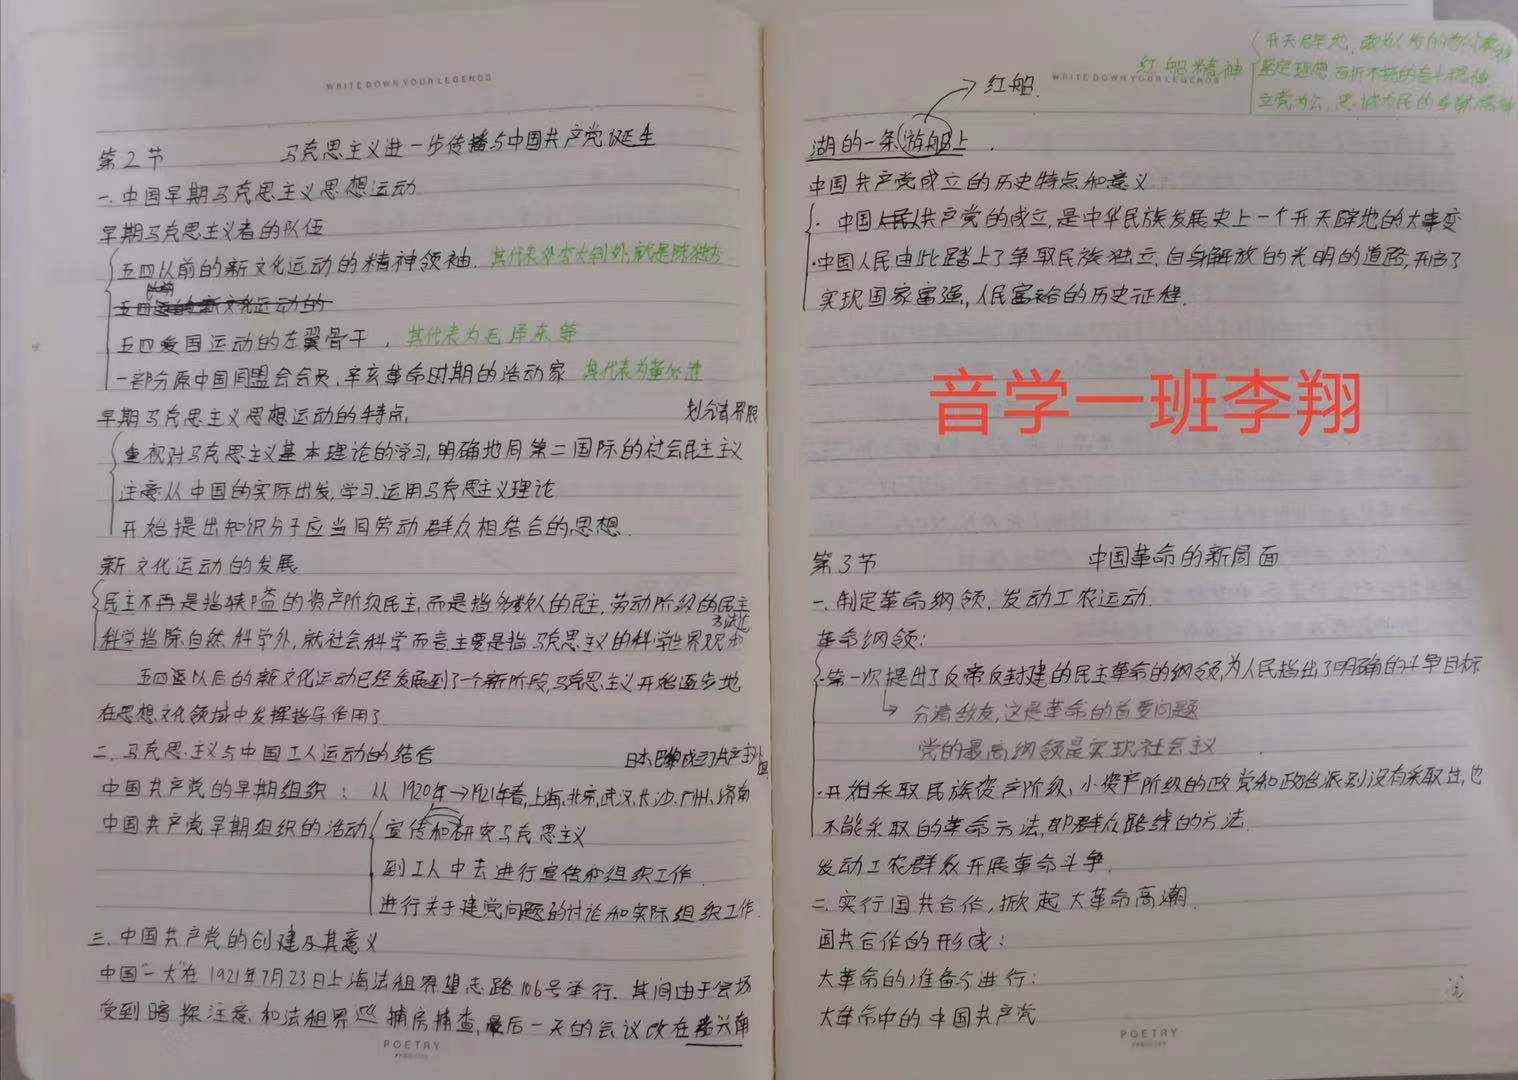 WRITE DOWN YOUR LEGENDS
第2节 马克思主义进一步传播与中国共产党诞生
一.中国早期马克思主义思想运动
早期马克思主义者的队伍
五四以前的新文化运动的精神领袖. 其代表
五四爱国运动的左翼骨干, 其代表为毛泽东等
一部分原中国同盟会会员,辛亥革命时期的活动家 其代表为董必武
早期马克思主义思想运动的特点,
划分清界限
重视对马克思主义基本理论的学习,明确地同第二国际的社会民主主义
注意从中国的实际出发,学习.运用马克思主义理论
开始提出知识分子应当同劳动群众相结合的思想.
新文化运动的发展
民主不再是指狭隘的资产阶级民主,而是指多数人的民主,劳动阶级的民主
方法论
科学指除自然科学外,就社会科学而言主要是指马克思主义的科学世界观和
五四运以后的新文化运动已经发展到了个新阶段,马克思主义开始逐步地
在思想文化领域中发挥指导作用了
二.马克思主义与中国工人运动的结合
日本.巴黎成立了共产主小组
中国共产党的早期组织: 从1920年→1921年春,上海.北京.武汉.长沙.广州.济南
中国共产党早期组织的活动 宣传和研究马克思主义
到工人中去进行宣传和组织工作.
进行关于建党问题的讨论和实际组织工作.
三.中国共产党的创建及其意义
中国"一大"在1921年7月23日上海法租界望志路106号举行.其间由于会场
受到暗探注意和法租界巡捕房搜查,最后一天的会议改在嘉兴南
POETRY
红船精神
开天辟地,敢为人先的首创精神
坚定理想 百折不挠的奋斗精神
立党为公,忠诚为民的奉献精神
WRITE DOWN YOUR LEGENDS
红船.
湖的一条游船上.
中国共产党成立的历史特点和意义
·中国共产党的成立,是中华民族发展史上一个开天辟地的大事变
·中国人民由此踏上了争取民族独立.自身解放的光明的道路,开启了
实现国家富强,人民富裕的历史征程.
音学一班李翔
第3节 中国革命的新局面
一.制定革命纲领,发动工农运动.
革命纲领:
·第一次提出了反帝反封建的民主革命的纲领,为人民指出了明确的斗争目标
分清敌友,这是革命的首要问题
党的最高纲领是实现社会主义
·开始采取民族资产阶级、小资产阶级的政党和政治派别没有采取过,也
不能采取的革命方法,即群众路线的方法.
发动工农群众开展革命斗争.
二.实行国共合作,掀起大革命高潮.
国共合作的形成:
大革命的准备与进行:
大革命中的中国共产党
POETRY